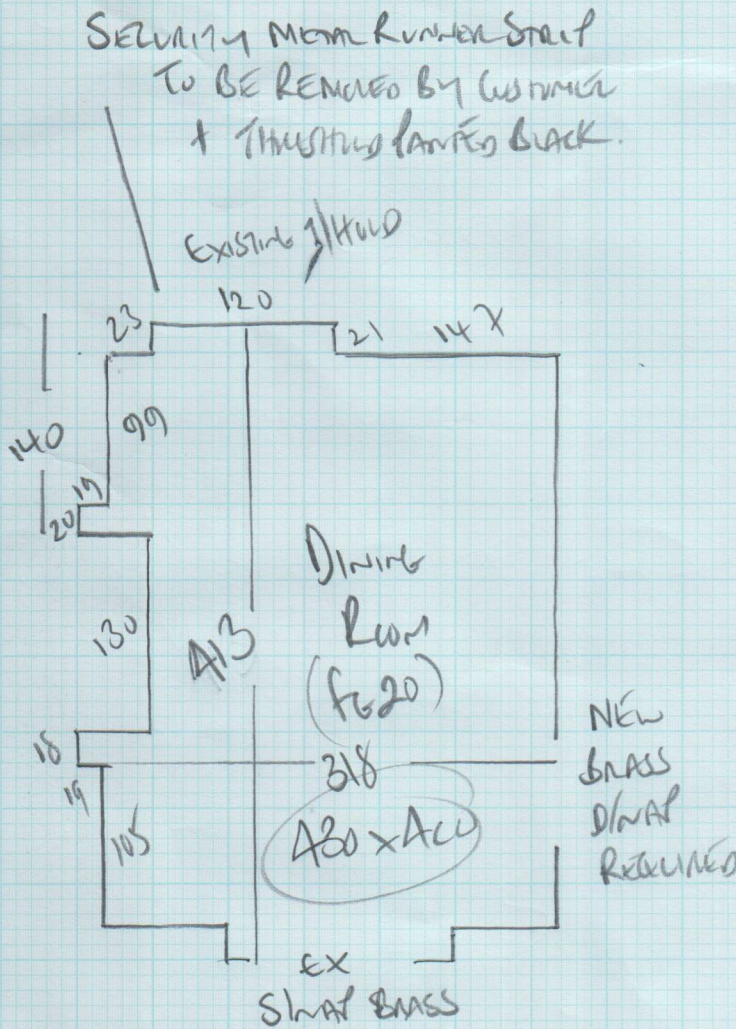 SECURITY METAL RUNNER STRIP
TO BE REMOVED BY CUSTOMER
+ THRESHOLD PAINTED BLACK.
EXISTING T/HOLD
120
23
21
147
99
140
19
20
DINING
ROOM
(FG20)
130
413
318
18
19
105
430 x 400
NEW
BRASS
D/NAP
REQUIRED
EX
S/NAP BRASS